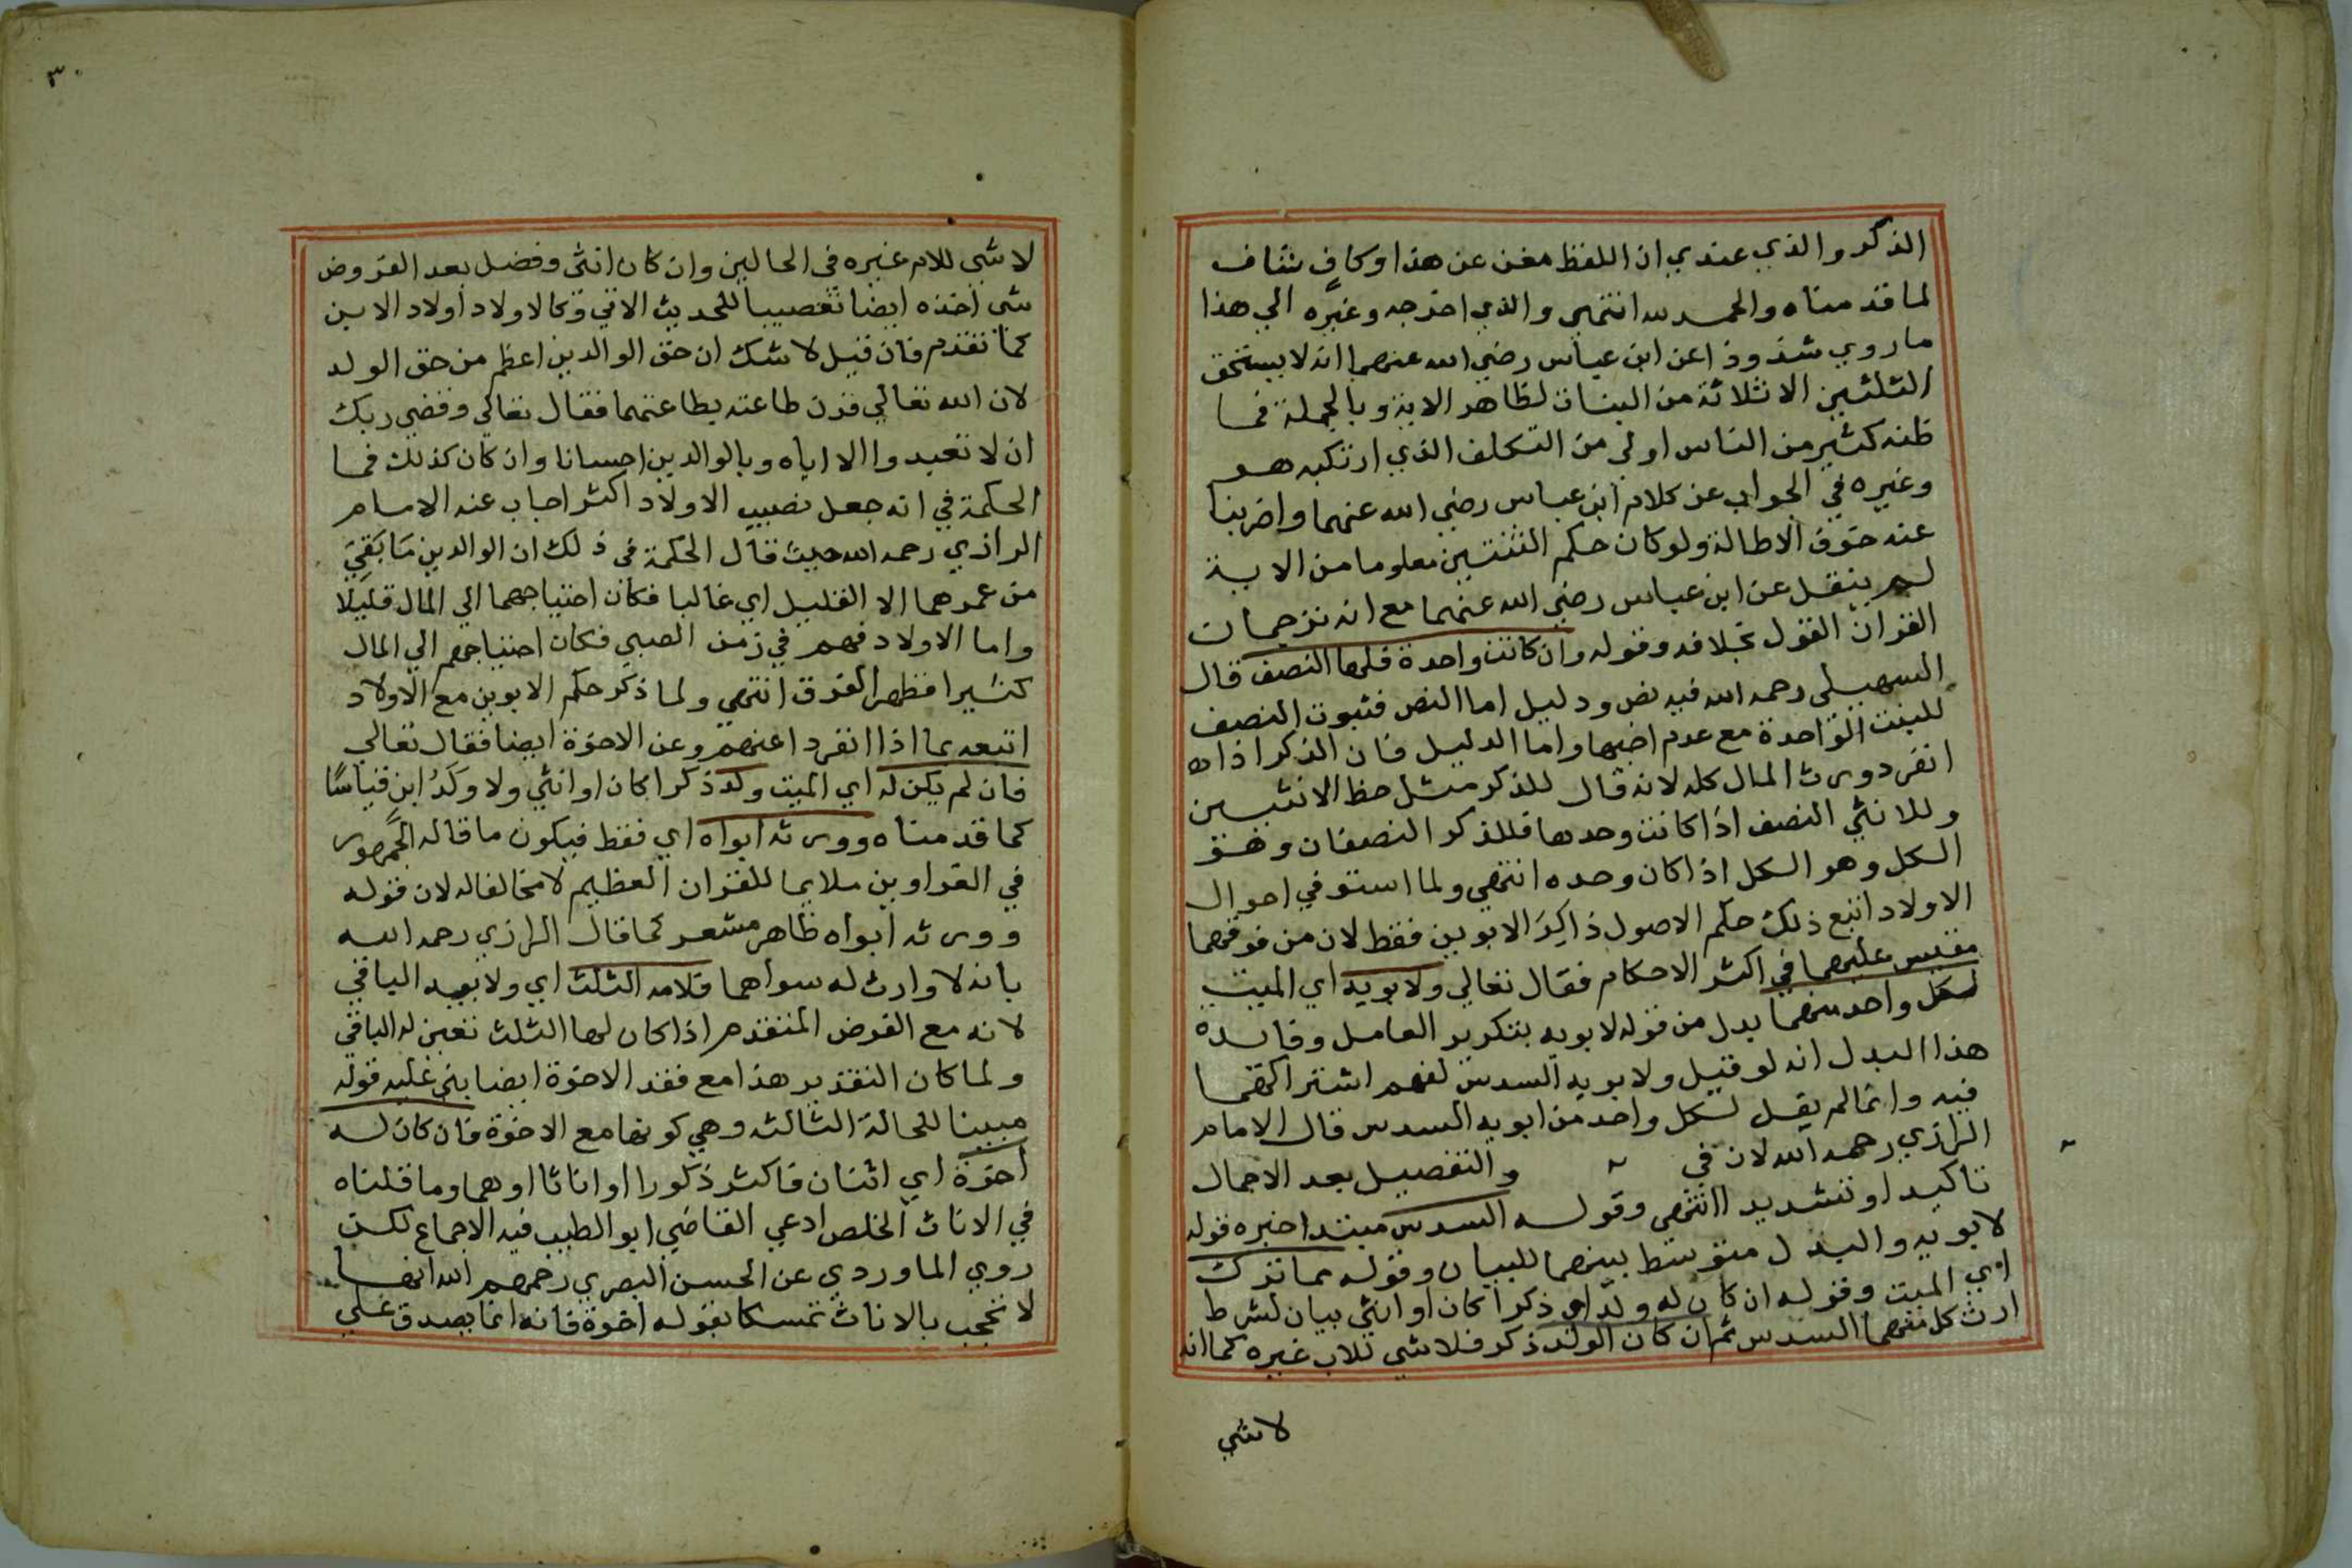 الذكر والذي عندي ان اللفظ مغن عن هذا وكافٍ شاف
لما قدمناه والحمد لله انتهى والذي اخرجه وغيره الي هذا
ما روي شذوذا عن ابن عباس رضي الله عنهما انه لا يستحق
الثلثين الا ثلاثة من البنات لظاهر الاية وبالجملة فما
ظنه كثير من الناس اولي من التكلف الذي ارتكبه هو
وغيره في الجواب عن كلام ابن عباس رضي الله عنهما واضربنا
عنه خوف الاطالة ولو كان حكم الثنتين معلوما من الاية
لم ينقل عن ابن عباس رضي الله عنهما مع انه ترجمان
القران القول بخلافه وقوله وان كانت واحدة فلها النصف قال
السهيلي رحمه الله فيه نص ودليل اما النص فثبوت النصف
للبنت الواحدة مع عدم اخيها واما الدليل فان الذكر اذا
انفرد ورث المال كله لانه قال للذكر مثل حظ الانثيين
وللانثي النصف اذا كانت وحدها فللذكر النصفان وهو
الكل وهو الكل اذا كان وحده انتهى ولما استوفي احوال
الاولاد اتبع ذلك حكم الاصول ذاكِرَ الابوين فقط لان من فوقهما
مقيس عليهما في اكثر الاحكام فقال تعالي ولابويه اي الميت
لكل واحد منهما بدل من قوله لابويه بتكرير العامل وفايدة
هذا البدل انه لو قيل ولابويه السدس لفهم اشتراكهما
فيه وانما لم يقل لكل واحد من ابويه السدس قال الامام
الرازي رحمه الله لان في والتفصيل بعد الاجمال
تاكيد او تشديدا انتهى وقوله السدس مبتدا خبره قوله
لابويه والبدل متوسط بينهما للبيان وقوله مما ترك
اي الميت وقوله ان كان له ولد اي ذكرا كان او انثي بيان لشرط
ارث كل منهما السدس ثم ان كان الولد ذكر فلا شي للاب غيره كما انه
لا شي
٣٠
لا شي للام غيره في الحالين وان كان انثى وفضل بعد الفروض
شي اخذه ايضا تعصيبا للحديث الاتي وكالاولاد اولاد الابن
كما تقدم فان قيل لا شك ان حق الوالدين اعظم من حق الولد
لان الله تعالي قرن طاعته بطاعتهما فقال تعالي وقضي ربك
ان لا تعبدوا الا اياه وبالوالدين احسانا وان كان كذلك فما
الحكمة في انه جعل نصيب الاولاد اكثر اجاب عنه الامام
الرازي رحمه الله حيث قال الحكمة في ذلك ان الوالدين مَا بَقِيَ
من عمرهما الا القليل اي غالبا فكان احتياجهما الي المال قليلا
واما الاولاد فهم في زمن الصبي فكان احتياجهم الي المال
كثيرا فظهر الفرق انتهي ولما ذكر حكم الابوين مع الاولاد
اتبعه بما اذا انفردا عنهم وعن الاخوة ايضا فقال تعالي
فان لم يكن له اي الميت ولد ذكرا كان او انثي ولا وَلَدُ ابنٍ قياسًا
كما قدمناه وورثه ابواه اي فقط فيكون ما قاله الجمهور
في الغراوين ملايما للقران العظيم لا مخالفا له لان قوله
وورثه ابواه ظاهر مشعر كما قال الرازي رحمه الله
بانه لا وارث له سواهما فلامه الثلث اي ولابيه الباقي
لانه مع الفرض المتقدم اذا كان لها الثلث تعين له الباقي
ولما كان التقدير هذا مع فقد الاخوة ايضا بني عليه قوله
مبينا للحالة الثالثه وهي كونها مع الاخوة فان كان له
اخوة اي اثنان فاكثر ذكورا او اناثا او هما وما قلناه
في الاناث الخلص ادعي القاضي ابو الطيب فيه الاجماع لكن
روي الماوردي عن الحسن البصري رحمهم الله انها
لا تحجب بالاناث تمسكا بقوله اخوة فانه انما يصدق علي